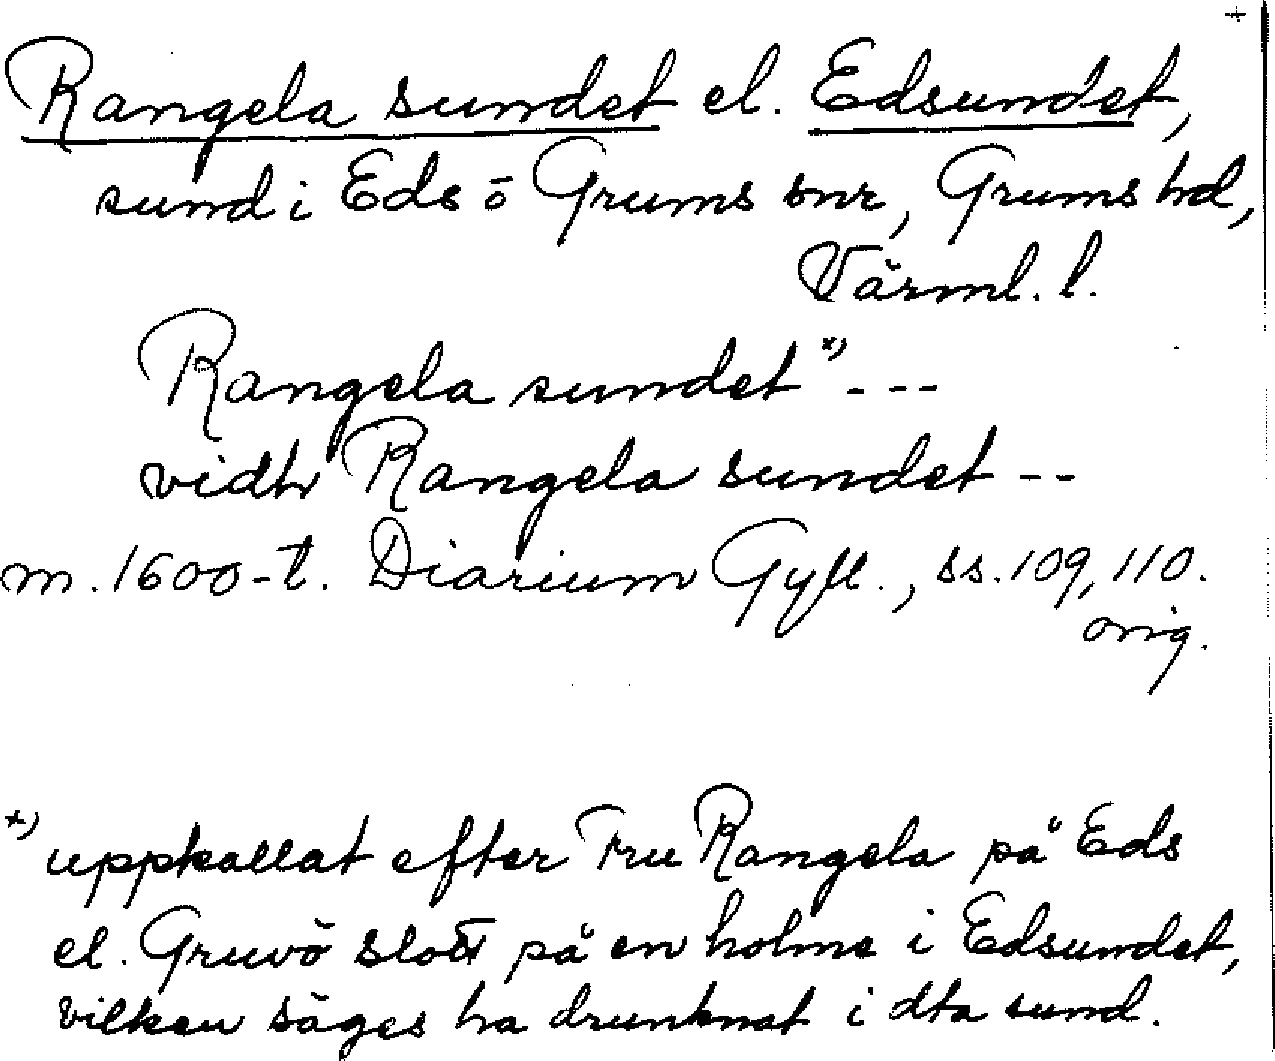 +
Rangela sundet el. Edsundet,
sund i Eds o Grums snr, Grums hd,
Värml. l.
Rangela sundet x) - - -
vidh Rangela sundet - -
m. 1600-t. Diarium Gyll., ss. 109, 110.
orig.
x) uppkallat efter Fru Rangela på Eds
el. Gruvö slott på en holme i Edsundet,
vilken säges ha drunknat i dta sund.